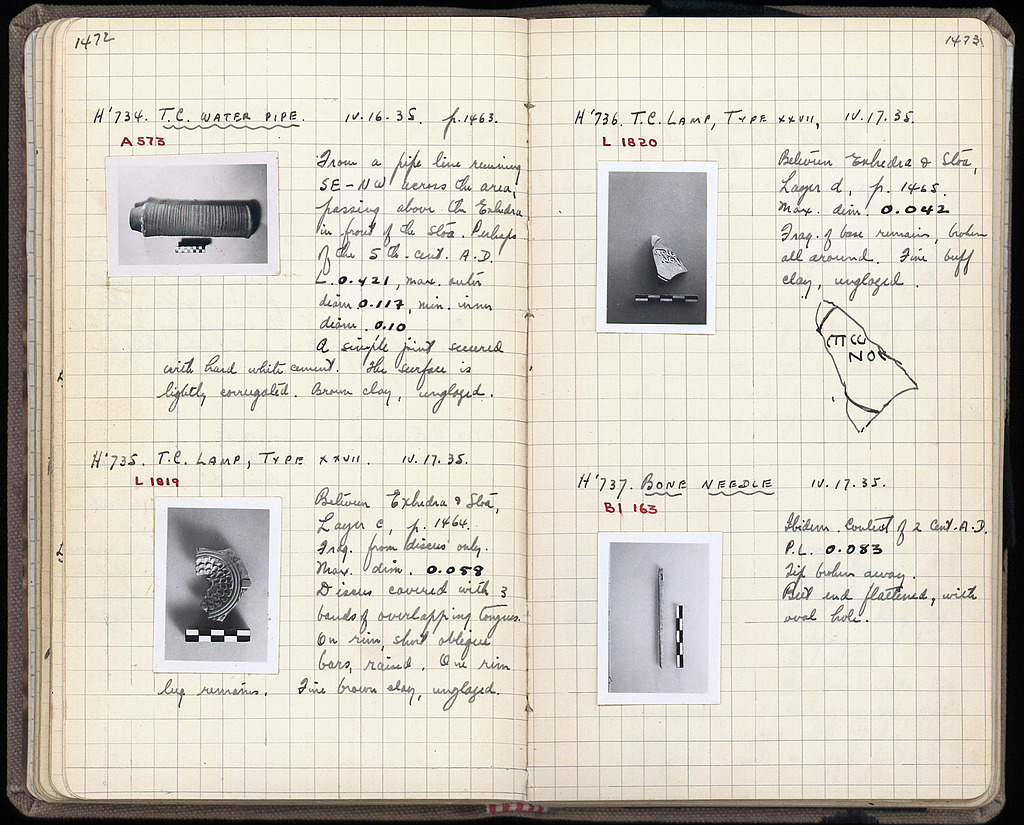 1472
H'734. T.C. WATER PIPE. IV.16.35. p.1463.
A 573
From a pipe line running
SE-NW across the area,
passing above the Exhedra
in front of the Stoa. Perhaps
of the 5 th. cent. A.D.
L. 0.421, max. outer
diam. 0.117, min. inner
diam. 0.10
A simple joint secured
with hard white cement. The surface is
lightly corrugated. Brown clay, unglazed.
H'735. T.C. LAMP, TYPE XXVII. IV.17.35.
L 1819
Between Exhedra & Stoa,
Layer c, p. 1464.
Frag. from discus only.
Max. dim. 0.058
Discus covered with 3
bands of overlapping tongues.
On rim, short oblique
bars, raised. One rim
lug remains. Fine brown clay, unglazed.
1473
H'736. T.C. LAMP, TYPE XXVII, IV.17.35.
L 1820
Between Exhedra & Stoa,
Layer d, p. 1465.
Max. dim. 0.042
Frag. of base remains, broken
all around. Fine buff
clay, unglazed.
H'737. BONE NEEDLE IV.17.35.
BI 163
Ibidem. Context of 2 Cent. A.D.
P.L. 0.083
Tip broken away.
Butt end flattened, with
oval hole.